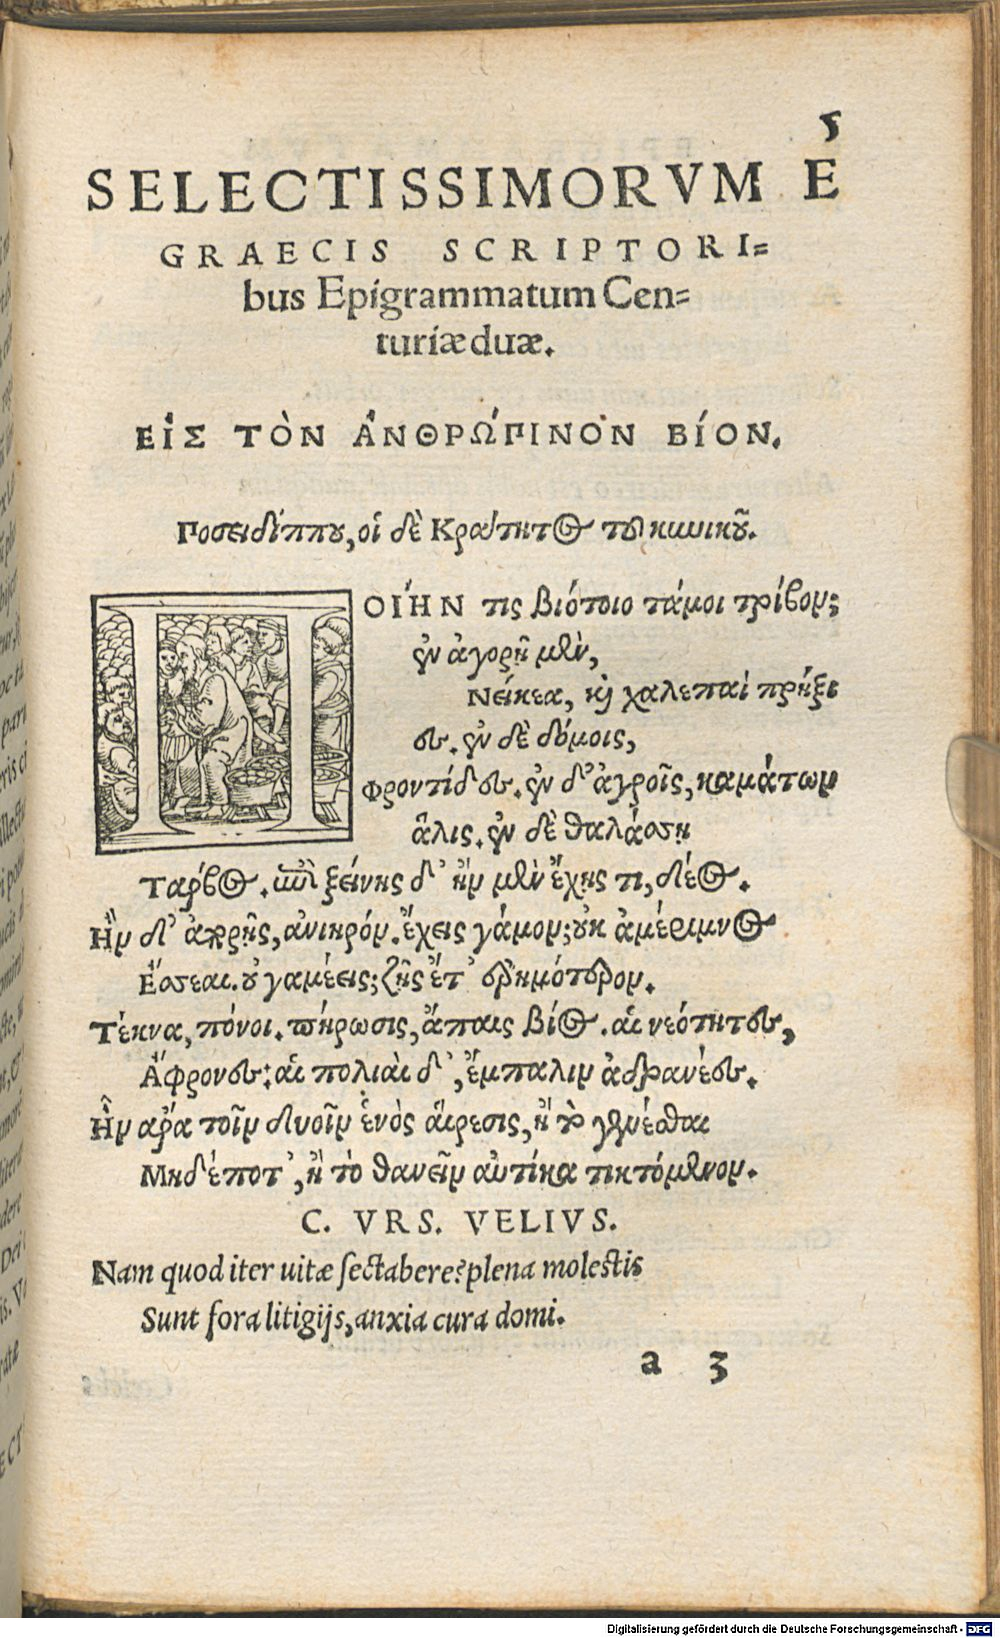 5
SELECTISSIMORVM È
GRAECIS SCRIPTORI=
bus Epigrammatum Cen=
turiæ duæ.
ΕΙΣ ΤῸΝ ἈΝΘΡΏΠΙΝΟΝ ΒΊΟΝ.
Ποσειδίππου, οἱ δὲ Κράτητος τοῦ κυνικοῦ.
ΠΟΊΗΝ τις βιότοιο τάμοι τρίβον;
ἐν ἀγορῇ μὲν,
Νείκεα, καὶ χαλεπαὶ πρήξι
ες. ἐν δὲ δόμοις,
Φροντίδες. ἐν δ' ἀγροῖς, καμάτων
ἅλις. ἐν δὲ θαλάσσῃ
Τάρβος. ἐπὶ ξείνης δ' ἢν μὲν ἔχῃς τι, δέος.
Ἢν δ' ἀπορῇς, ἀνιηρόν. ἔχεις γάμον; οὐκ ἀμέριμνος
Ἔσσεαι. οὐ γαμέεις; ζῇς ἔτ' ἐρημότερον.
Τέκνα, πόνοι. πήρωσις, ἄπαις βίος. αἱ νεότητες,
Ἄφρονες: αἱ πολιαὶ δ', ἔμπαλιν ἀδρανέες.
Ἢν ἄρα τοῖν δυοῖν ἑνὸς αἵρεσις, ἢ τὸ γενέσθαι
Μηδέποτ', ἢ τὸ θανεῖν αὐτίκα τικτόμενον.
C. VRS. VELIVS.
Nam quod iter uitæ sectabere? plena molestis
Sunt fora litigijs, anxia cura domi.
a 3
Digitalisierung gefördert durch die Deutsche Forschungsgemeinschaft - DFG